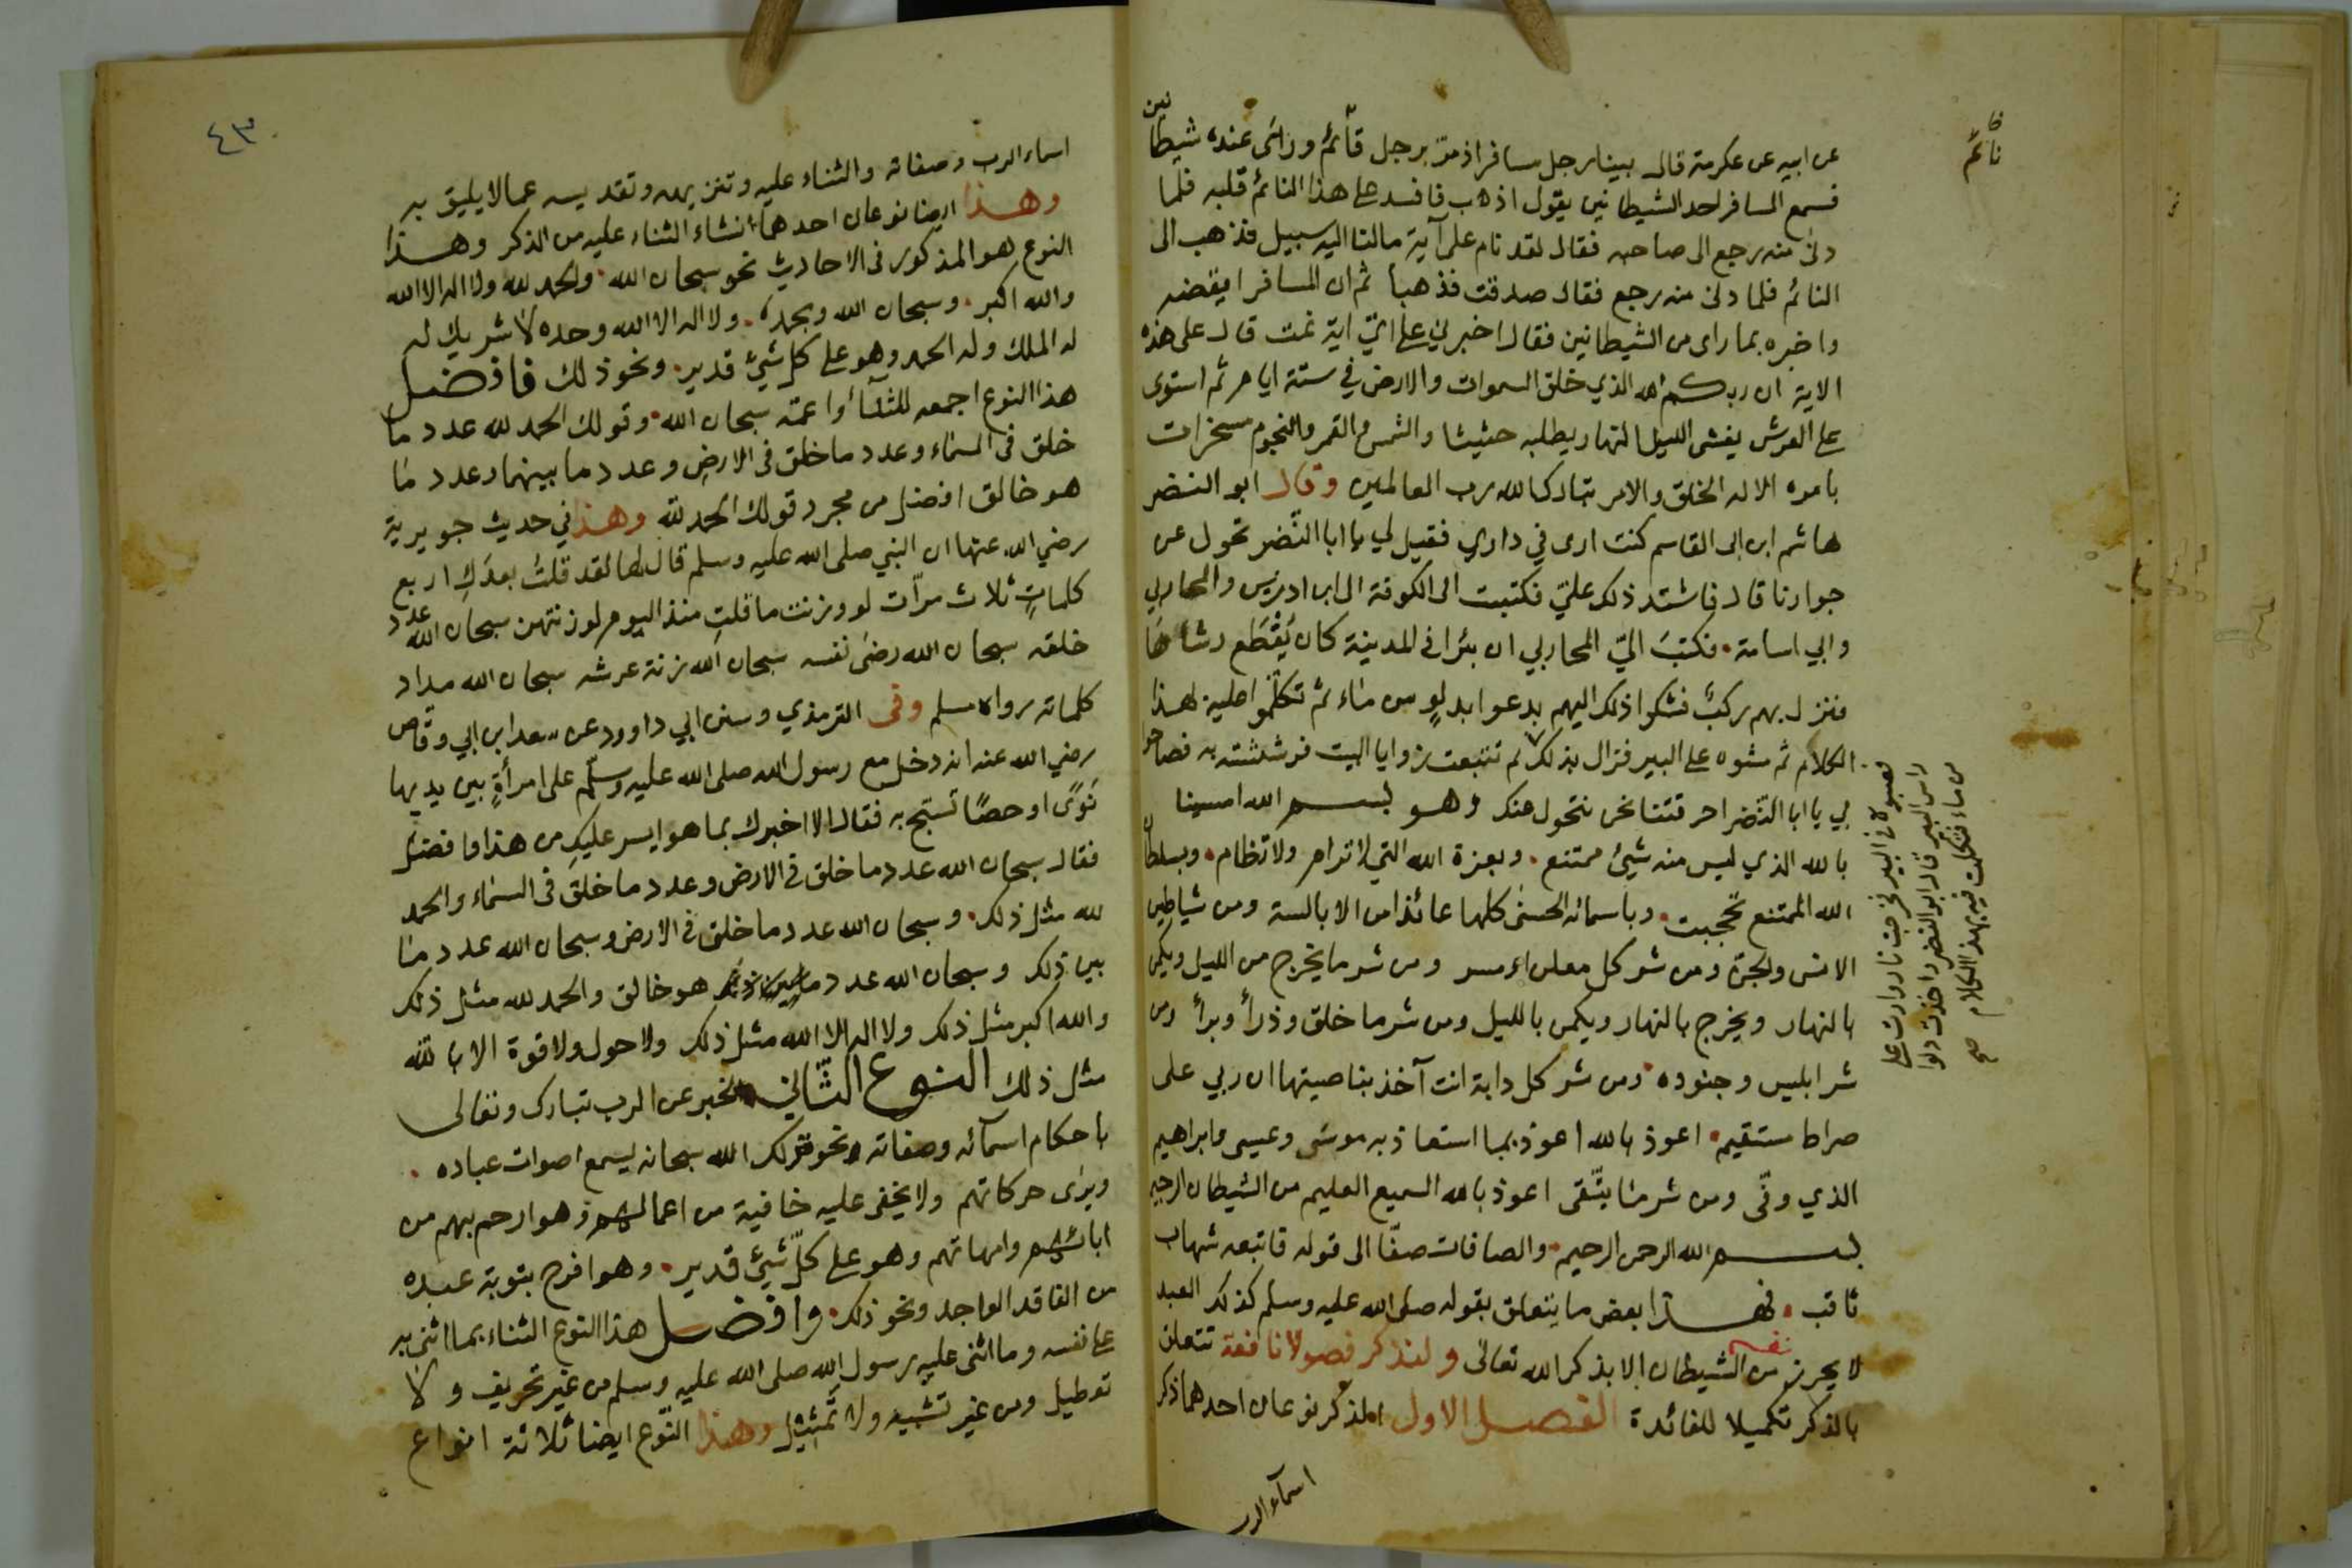 عن ابيه عن عكرمة قال بينا رجل مسافر اذ مرّ برجل قائم ورأى عنده شيطانين
فسمع المسافر احد الشيطانين يقول اذهب فافسد على هذا النائم قلبه فلما
دنى منه رجع الى صاحبه فقال لقد نام على آية مالنا اليه سبيل فذهب الى
النائم فلما دنى منه رجع فقال صدقت فذهبا ثم ان المسافر ايقضه
واخبره بما راى من الشيطانين فقال اخبرني على ايّ اية نمت قال على هذه
الاية ان ربكم الله الذي خلق السموات والارض في ستة ايام ثم استوى
على العرش يغشى الليل النهار يطلبه حثيثا والشمس والقمر والنجوم مسخرات
بامره الا له الخلق والامر تبارك الله رب العالمين وقال ابو النضر
هاشم ابن ابى القاسم كنت ارى في داري فقيل لي يا ابا النّضر تحول عن
جوارنا قال فاشتد ذلك عليّ فكتبت الى الكوفة الى ابن ادريس والمحاربي
وابي اسامة. فكتبَ اليّ المحاربي ان بئرا في المدينة كان يُقْطَع رشاءها
فنزل بهم ركبٌ فشكوا ذلك اليهم بدعوا بدلوٍ من ماء ثم تكلّموا عليه بهذا
الكلام ثم شوه على البير فزال بذلك ثم تتبعت زوايا البيت فرششته به فصاحو
لي يا ابا النّضر احرقتنا نحن نتحول عنك وهو بسم الله امسينا
بالله الذي ليس منه شيئ ممتنع. وبعزة الله التي لا ترام ولا تظام. وبسلطان
الله الممتنع نحتجبت. وباسمائه الحسنى كلها عائذا من الابالسة ومن شياطين
الانس والجنّ ومن شر كل معلن او مسر ومن شر ما يخرج من الليل ويكمن
بالنهار ويخرج بالنهار ويكمن بالليل ومن شر ما خلق وذرأ وبرأ ومن
شر ابليس وجنوده. ومن شر كل دابة انت آخذ بناصيتها ان ربي على
صراط مستقيم. اعوذ بالله اعوذ بما استعاذ به موسى وعيسى وابراهيم
الذي وفّى ومن شر مَا يتّقى اعوذ بالله السميع العليم من الشيطان الرجيم
بسم الله الرحمن الرحيم. والصافات صفّا الى قوله فاتبعه شهاب
ثاقب. فهذا بعض ما يتعلق بقوله صلى الله عليه وسلم كذلك العبد
لا يحرز نفسه من الشيطان الا بذكر الله تعالى ولنذكر فصولا نافعة تتعلق
بالذكر تكميلا للفائدة الفصل الاول الذكر نوعان احدهما ذكر
اسمآء الرب
نائم
فصبوه في البير فخرجت نار وارت على
راس البير قال ابو النضر واخذت دلوا
من ماء فتكلمت فيه بهذا الكلام صح
٤٣
اسماء الرب وصفاته والثناء عليه وتنزيهه وتقديسه عما لا يليق به
وهذا ايضا نوعان احدهما انشاء الثناء عليه من الذكر وهذا
النوع هو المذكور فى الاحاديث نحو سبحان الله. والحمد لله ولا اله الا الله
والله اكبر. وسبحان الله وبحمده. ولا اله الا الله وحده لا شريك له
له الملك وله الحمد وهو على كل شيئ قدير. ونحو ذلك فافضل
هذا النوع اجمعه للثنآء واعمّه سبحان الله. وقولك الحمد لله عدد ما
خلق فى السماء وعدد ما خلق فى الارض وعدد ما بينهما وعدد مَا
هو خالق افضل من مجرد قولك الحمد لله وهذا في حديث جويرية
رضي الله عنها ان النبي صلى الله عليه وسلم قال لها لقد قلتُ بعدَكِ اربع
كلماتٍ ثلاث مرّات لو وزنت ما قلتِ منذ اليوم لوزنتهن سبحان الله عدد
خلقه سبحان الله رضى نفسه سبحان الله زنة عرشه سبحان الله مداد
كلماته رواه مسلم وفى الترمذي وسنن ابي داوود عن سعد ابن ابي وقاص
رضي الله عنه انه دخل مع رسول الله صلى الله عليه وسلّم على امرأةٍ بين يديها
نَوًى او حصًا تسبّح به فقال الا اخبرك بما هو ايسر عليكِ من هذا وافضل
فقال سبحان الله عدد ما خلق في الارض وعدد ما خلق فى السماء والحمد
لله مثل ذلك. وسبحان الله عدد ما خلق في الارض وسبحان الله عدد مَا
بين ذلك وسبحان الله عدد ما هو خالق والحمد لله مثل ذلك
والله اكبر مثل ذلك ولا اله الا الله مثل ذلك ولا حول ولا قوة الا بالله
مثل ذلك النوع الثّاني الخبر عن الرب تبارك وتعالى
باحكام اسمآئه وصفاته ونحو قولك الله سبحانه يسمع اصوات عباده.
ويرى حركاتهم ولا يخفى عليه خافية من اعمالهم وهو ارحم بهم من
ابائهم وامهاتهم وهو على كلّ شيئ قدير. وهو افرح بتوبة عبده
من الفاقد الواجد ونحو ذلك. وافضل هذا النوع الثناء بما اثنى به
على نفسه وما اثنى عليه رسول الله صلى الله عليه وسلم من غير تحريف ولا
تعطيل ومن غير تشبيه ولا تمثيل وهذا النّوع ايضا ثلاثة انواع